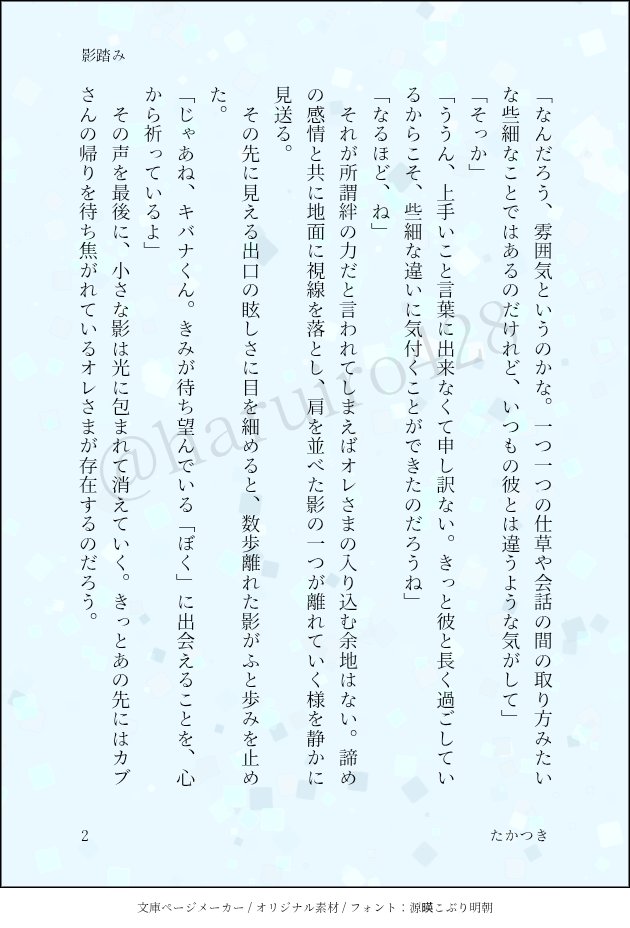 影踏み
「なんだろう、雰囲気というのかな。一つ一つの仕草や会話の間の取り方みたい
な些細なことではあるのだけれど、いつもの彼とは違うような気がして」
「そっか」
「ううん、上手いこと言葉に出来なくて申し訳ない。きっと彼と長く過ごしてい
るからこそ、些細な違いに気付くことができたのだろうね」
「なるほど、ね」
それが所謂絆の力だと言われてしまえばオレさまの入り込む余地はない。諦め
の感情と共に地面に視線を落とし、肩を並べた影の一つが離れていく様を静かに
見送る。
その先に見える出口の眩しさに目を細めると、数歩離れた影がふと歩みを止め
た。
「じゃあね、キバナくん。きみが待ち望んでいる「ぼく」に出会えることを、心
から祈っているよ」
その声を最後に、小さな影は光に包まれて消えていく。きっとあの先にはカブ
さんの帰りを待ち焦がれているオレさまが存在するのだろう。
@haruiro428
2
たかつき
文庫ページメーカー / オリジナル素材 / フォント：源暎こぶり明朝